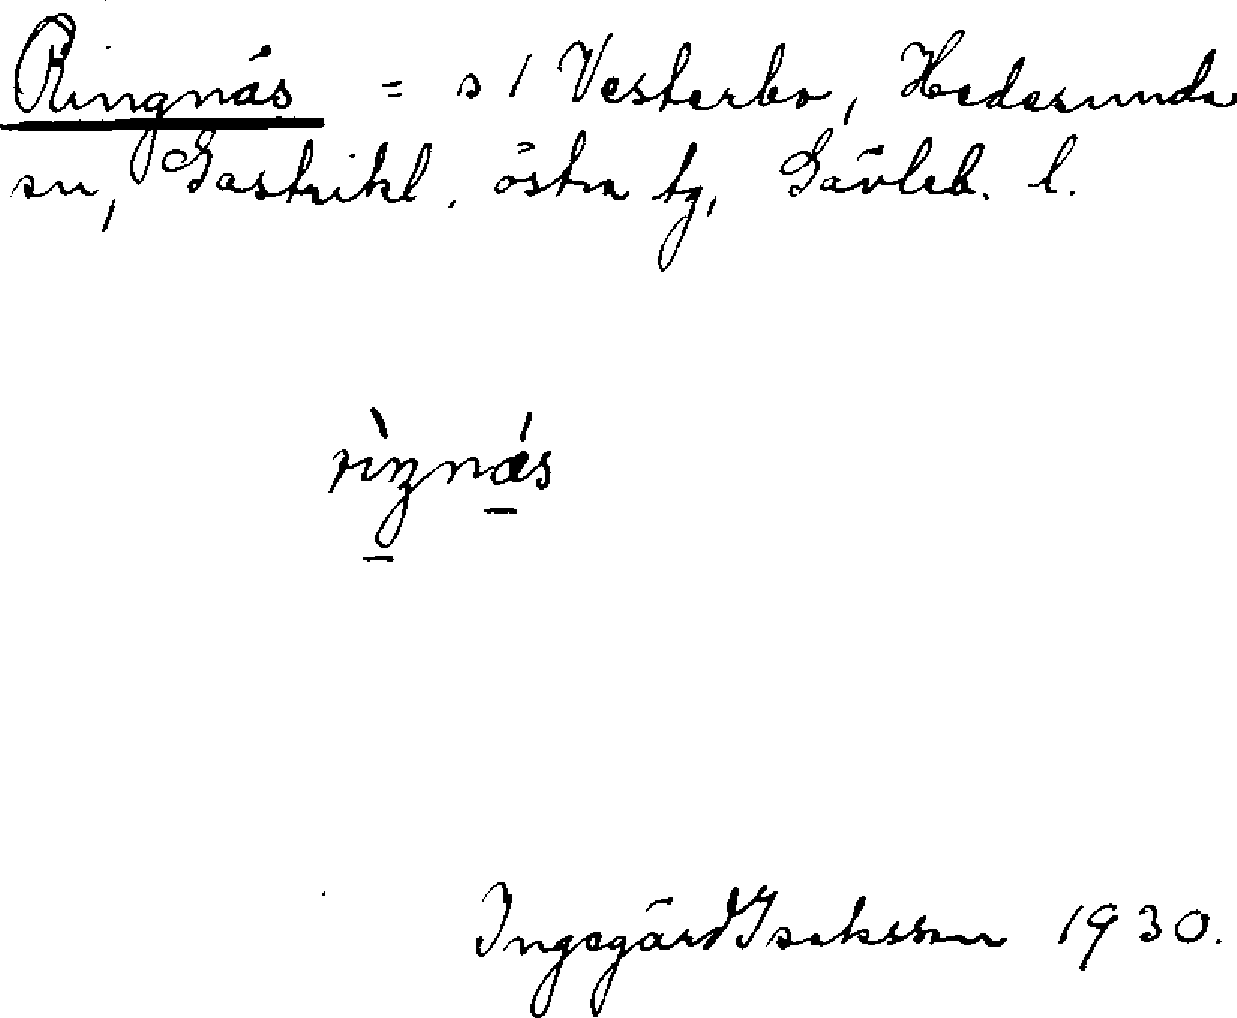 Ringnäs = s 1 Vesterbo, Hedesunda
sn, Gästrikl. östra tg, Gävleb. l.
rìŋnæ̀s
Ingegärd Isaksson 1930.